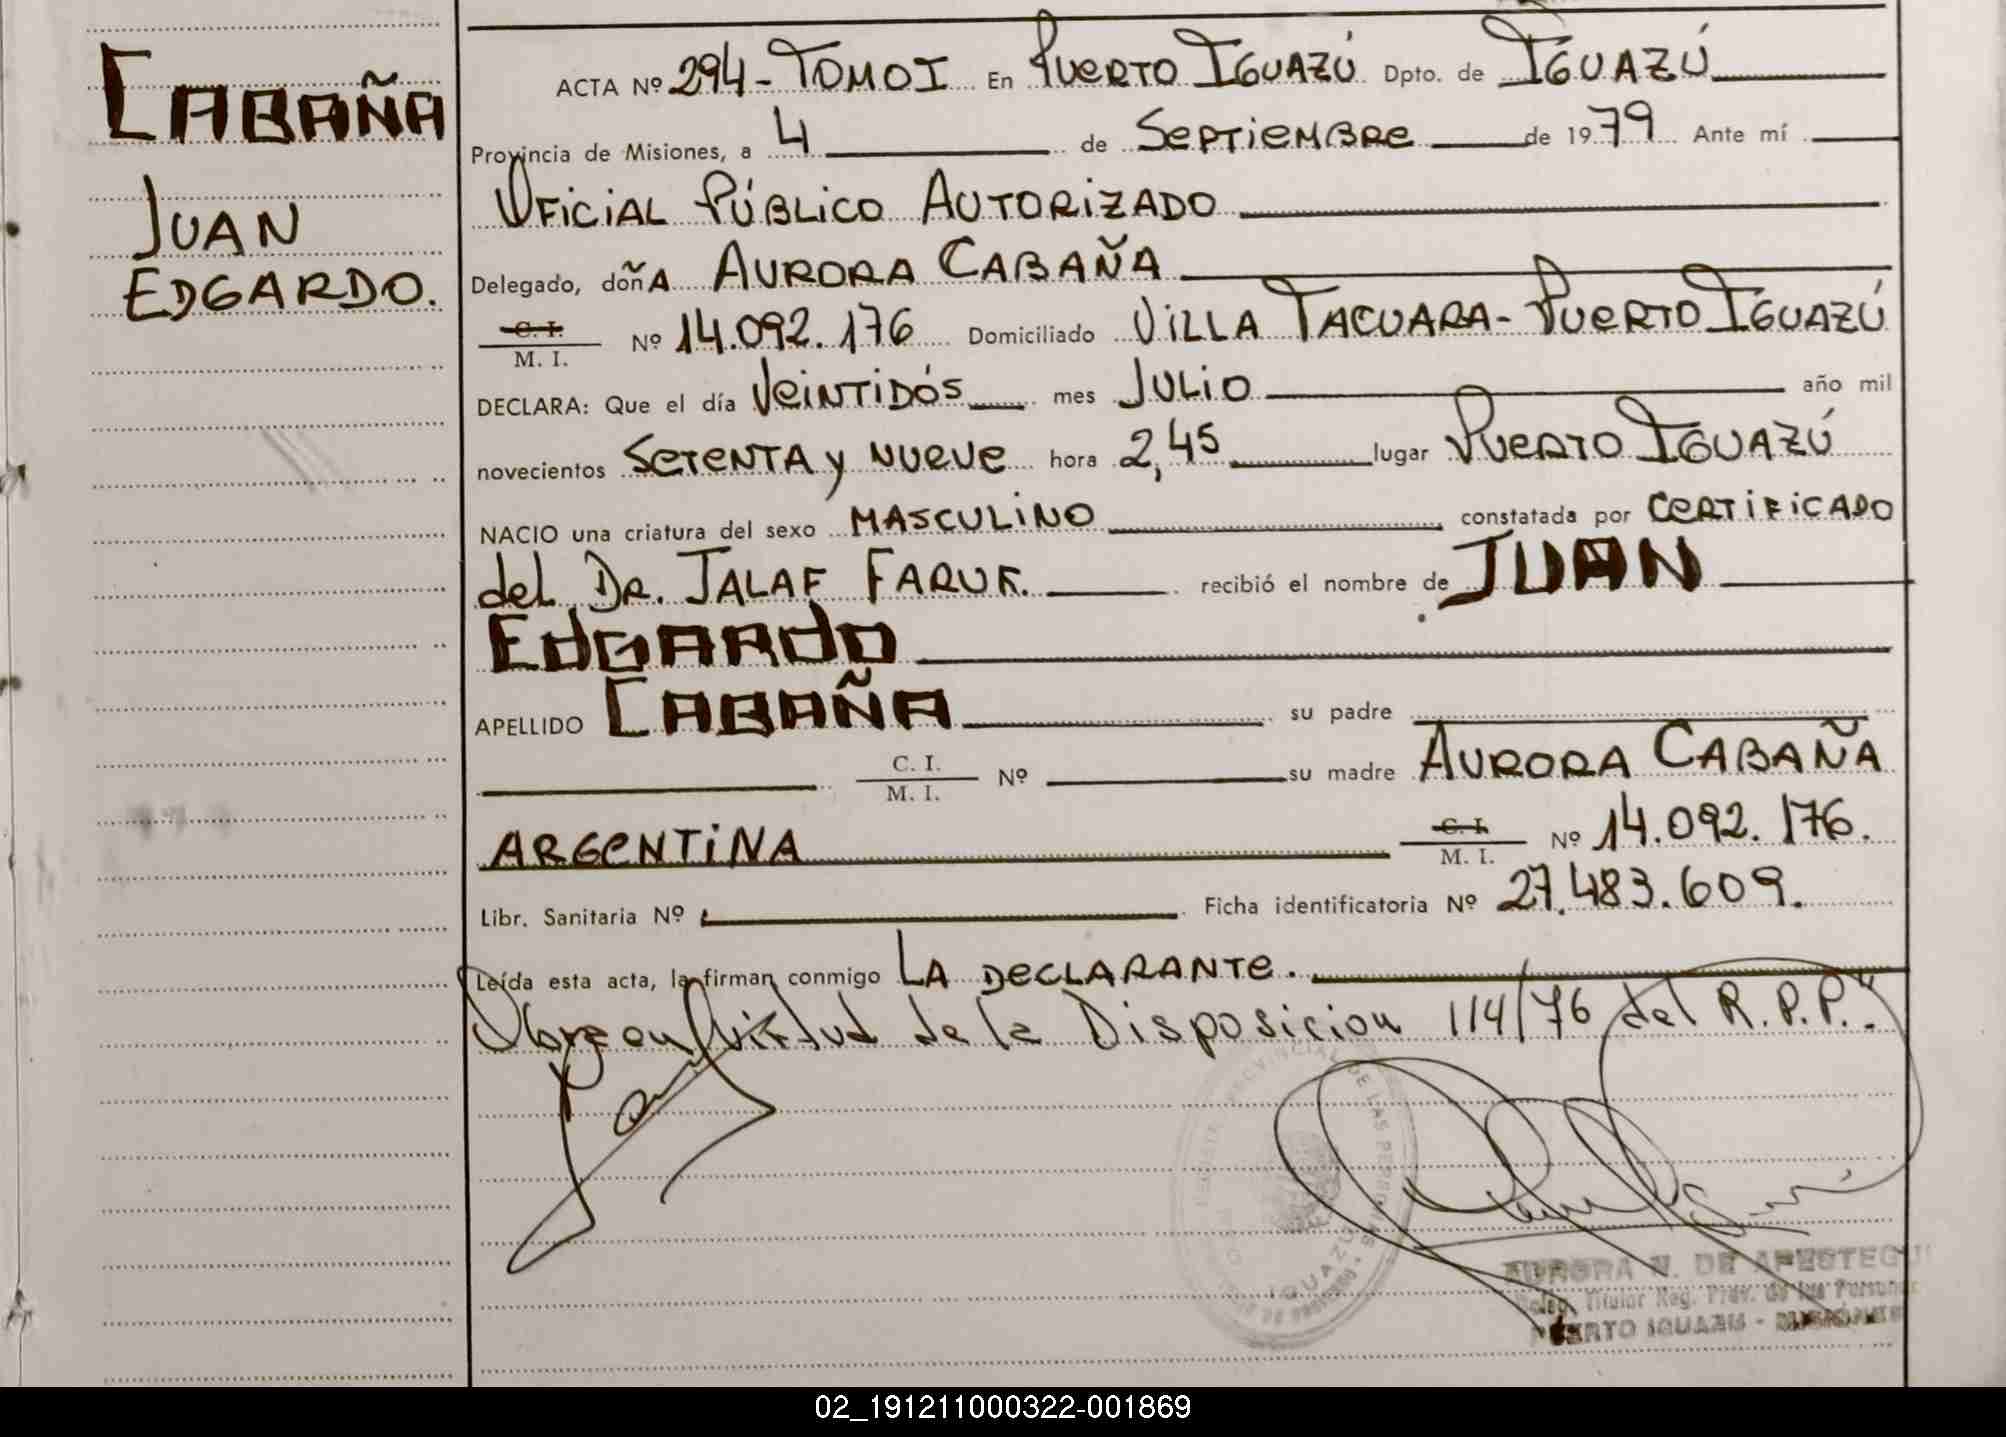 CABAÑA
JUAN
EDGARDO.
ACTA Nº 294-TOMO I En PUERTO IGUAZÚ Dpto. de IGUAZÚ
Provincia de Misiones, a 4 de SEPTIEMBRE de 1979 Ante mí
OFICIAL PÚBLICO AUTORIZADO
Delegado, doñA AURORA CABAÑA
C. I.
M. I. Nº 14.092.176 Domiciliado VILLA TACUARA-PUERTO IGUAZÚ
DECLARA: Que el día VEINTIDÓS mes JULIO año mil
novecientos SETENTA y NUEVE hora 2,45 lugar PUERTO IGUAZÚ
NACIO una criatura del sexo MASCULINO constatada por CERTIFICADO
del DR. JALAF FARUK. recibió el nombre de JUAN
EDGARDO
APELLIDO CABAÑA su padre
C. I.
M. I. Nº su madre AURORA CABAÑA
ARGENTINA C. I.
M. I. Nº 14.092.176.
Libr. Sanitaria Nº Ficha identificatoria Nº 27.483.609.
Leída esta acta, la firman conmigo LA DECLARANTE.
Obra en Virtud de la Disposicion 114/76 del R.P.P."
PROVINCIAL DE LAS PERSONAS
IGUAZÚ
AURORA N. DE APESTEGUI
Titular Reg. Prov. de las Personas
PUERTO IGUAZU - MISIONES
02_191211000322-001869